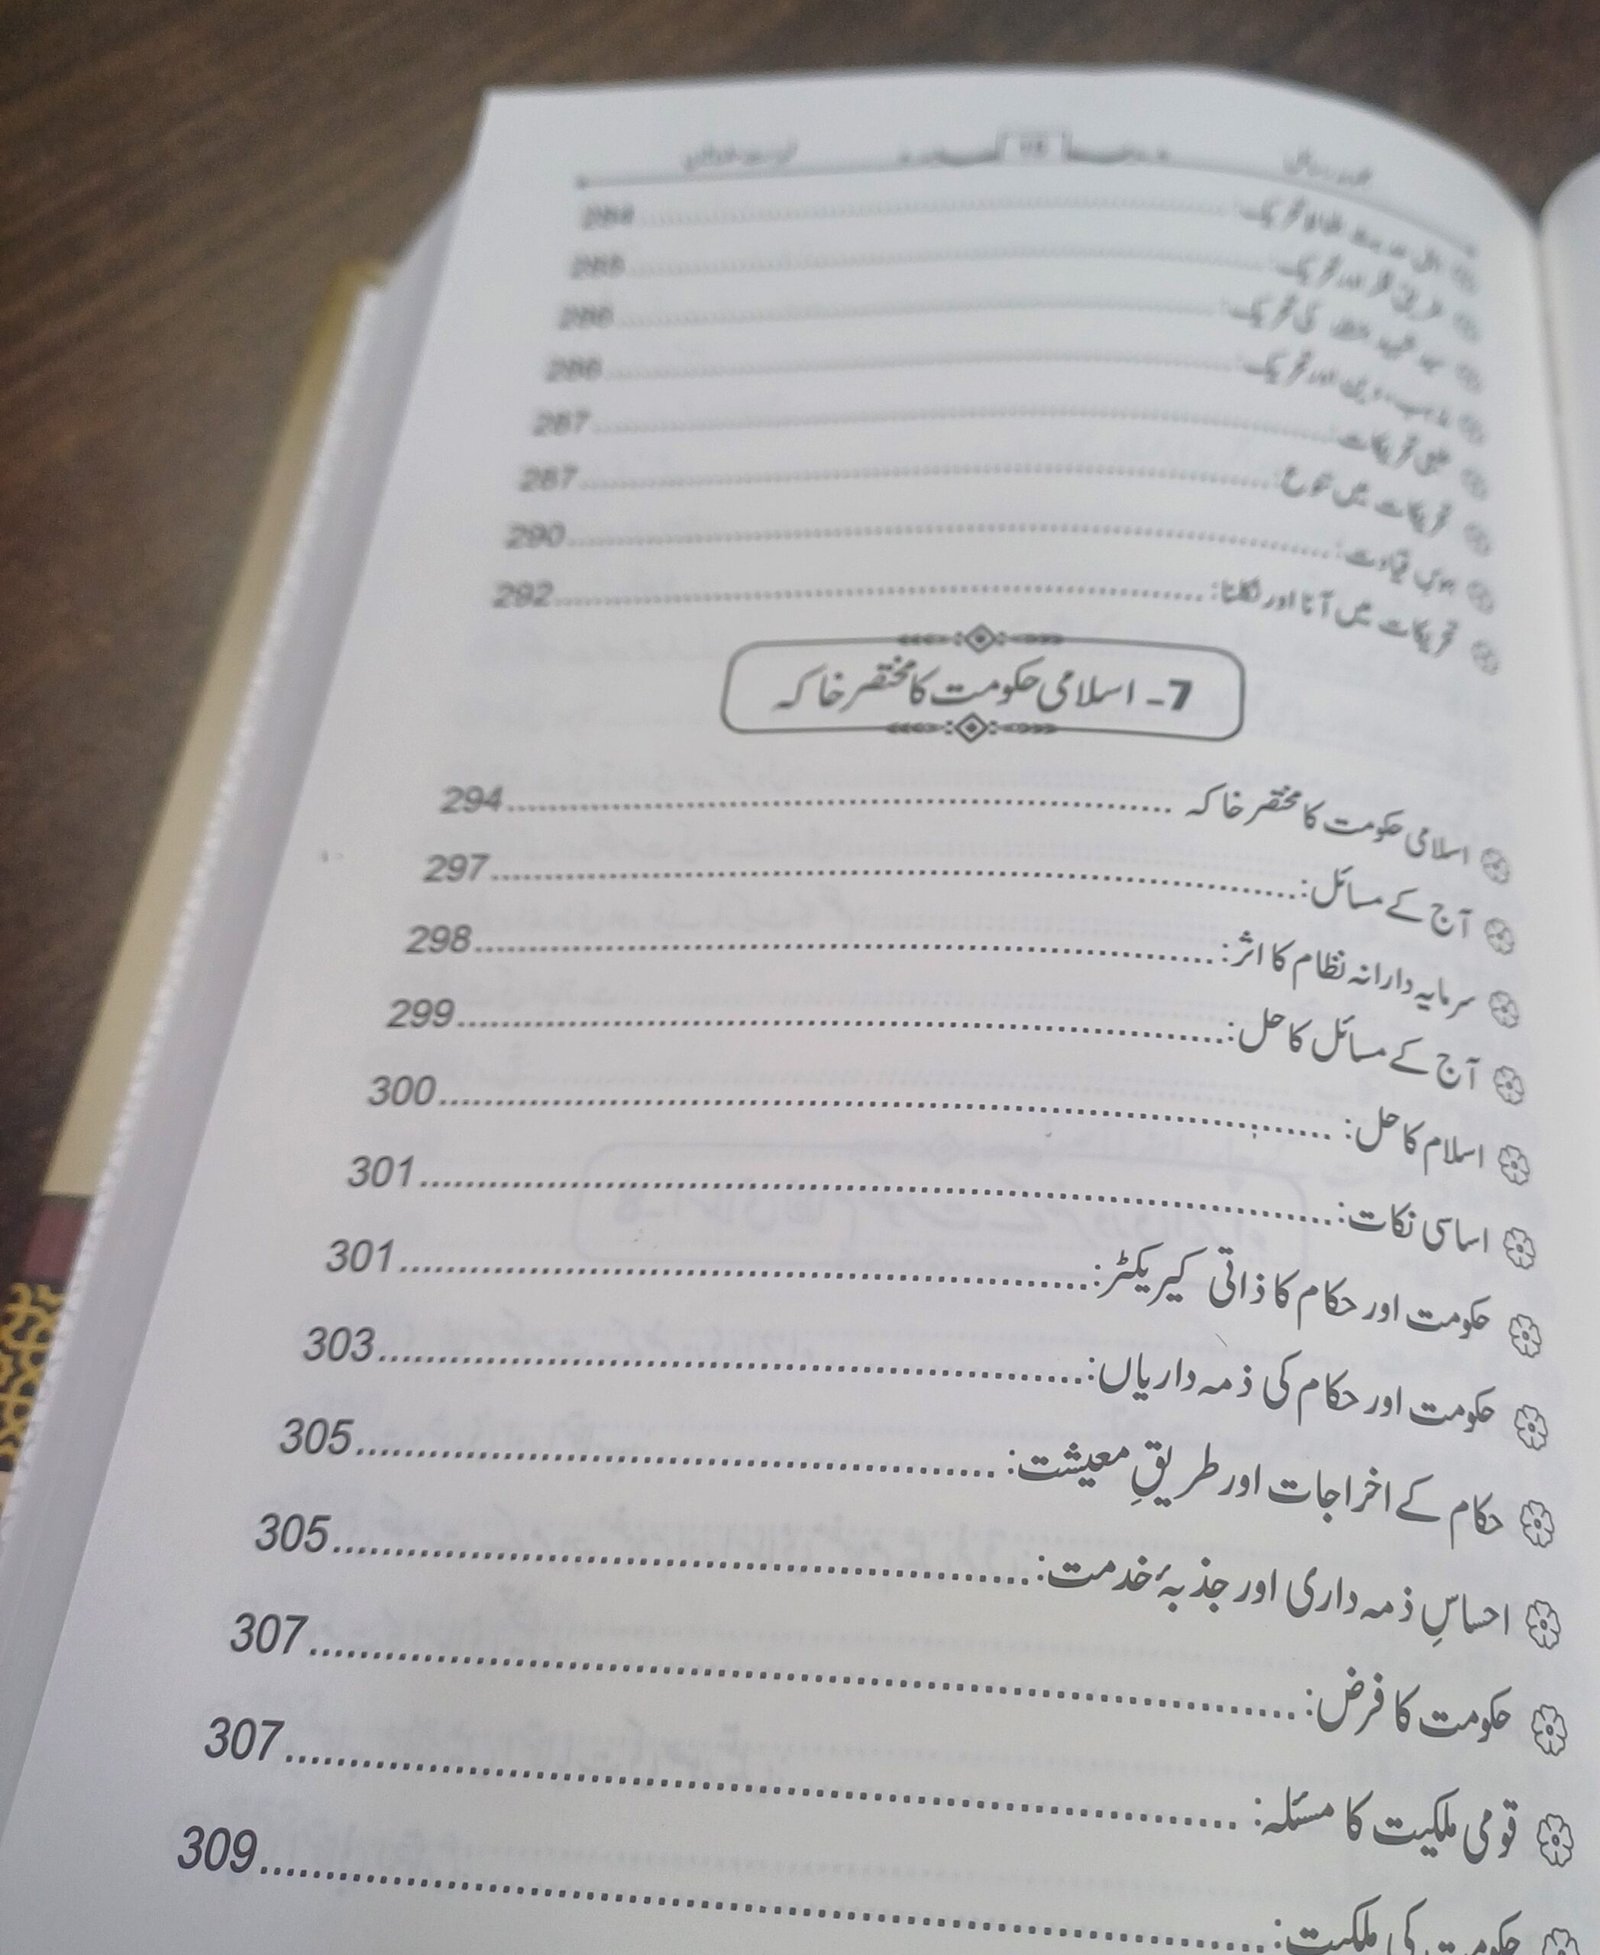 اہل حدیث تحریک: 284
طریقِ فکر اور تحریک: 285
سید شہید کی تحریک: 286
مذہب، دین اور تحریک: 286
طبی تحریکات: 287
تحریکات میں تنوع: 287
ہوسِ قیادت: 290
تحریکات میں آنا اور نکلنا: 292
7۔ اسلامی حکومت کا مختصر خاکہ
اسلامی حکومت کا مختصر خاکہ 294
آج کے مسائل: 297
سرمایہ دارانہ نظام کا اثر: 298
آج کے مسائل کا حل: 299
اسلام کا حل: 300
اساسی نکات: 301
حکومت اور حکام کا ذاتی کیریکٹر: 301
حکومت اور حکام کی ذمہ داریاں: 303
حکام کے اخراجات اور طریقِ معیشت: 305
احساسِ ذمہ داری اور جذبۂ خدمت: 305
حکومت کا فرض: 307
قومی ملکیت کا مسئلہ: 307
حکومت کی ملکیت: 309